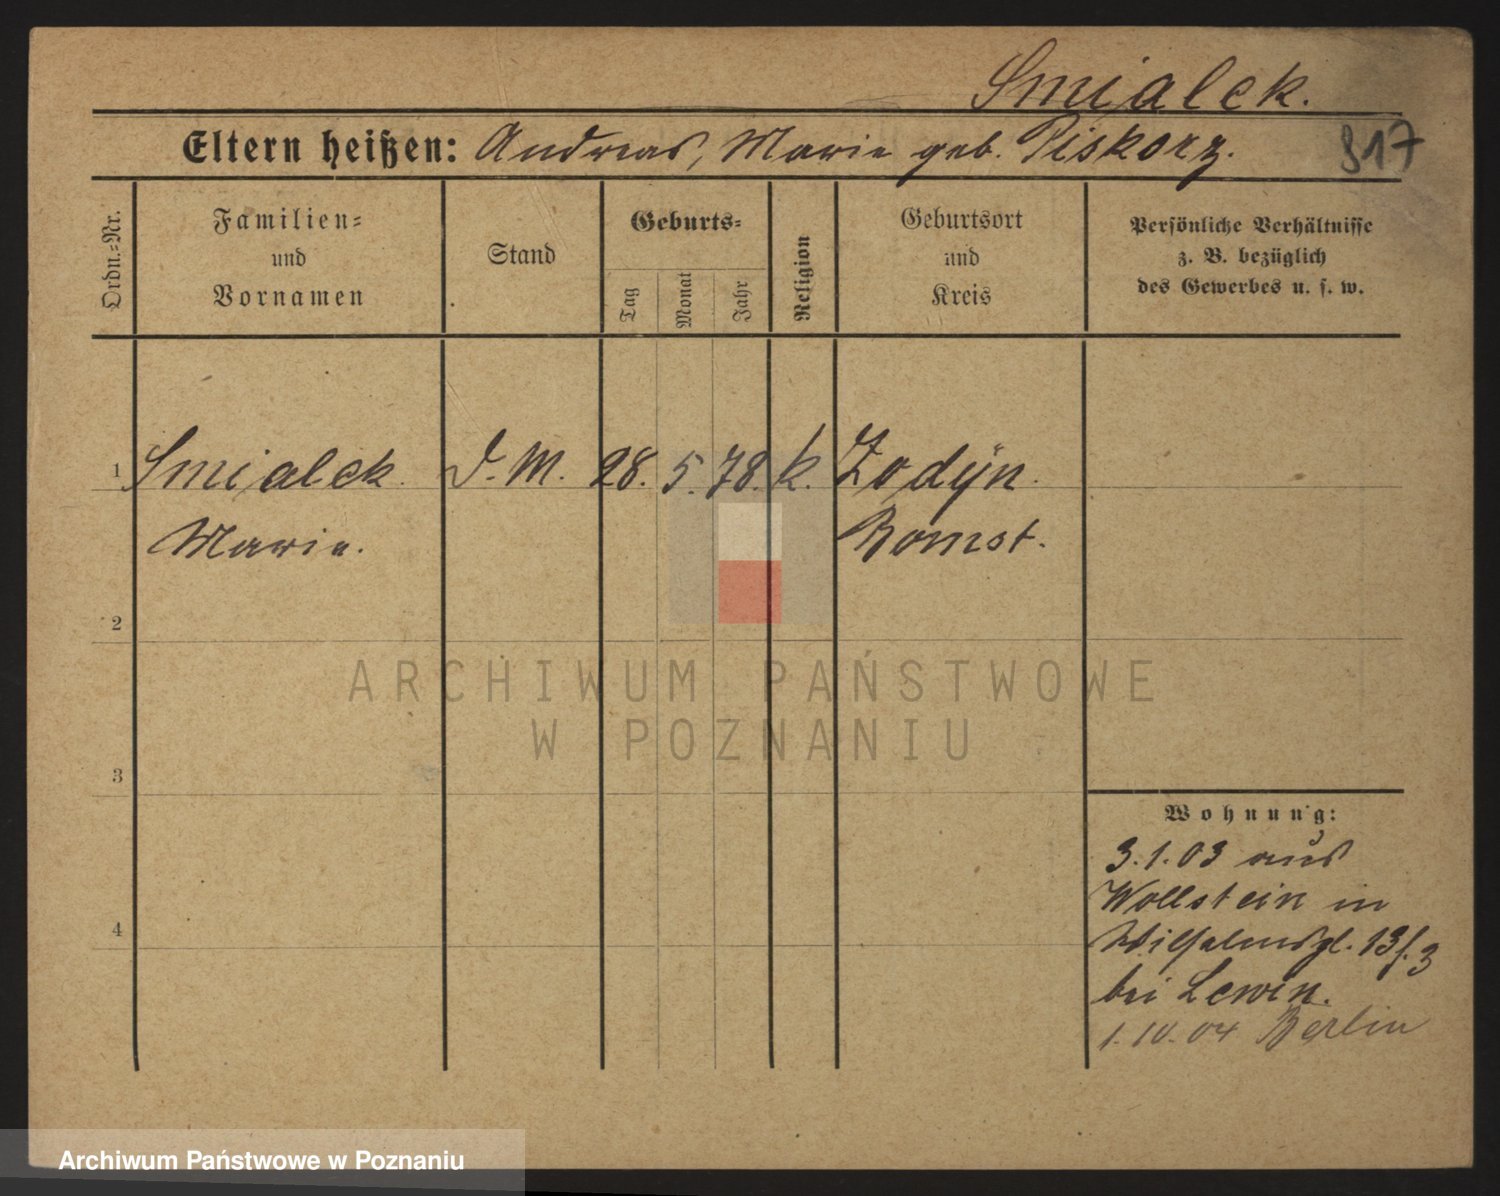 Smialek.
Eltern heißen: Andreas, Marie geb. Piskorz.
917
Ordn.=Nr.
Familien=
und
Vornamen
Stand
Geburts=
Tag
Monat
Jahr
Religion
Geburtsort
und
Kreis
Persönliche Verhältnisse
z. B. bezüglich
des Gewerbes u. s. w.
1 Smialek. D. M. 28. 5. 78. k. Zodÿn.
Marie. Bomst.
2
3
4
Wohnung:
3.1.03 aus
Wollstein in
Wilhelmspl. 13
bei Lewin.
1.10.04 Berlin
ARCHIWUM PAŃSTWOWE
W POZNANIU
Archiwum Państwowe w Poznaniu